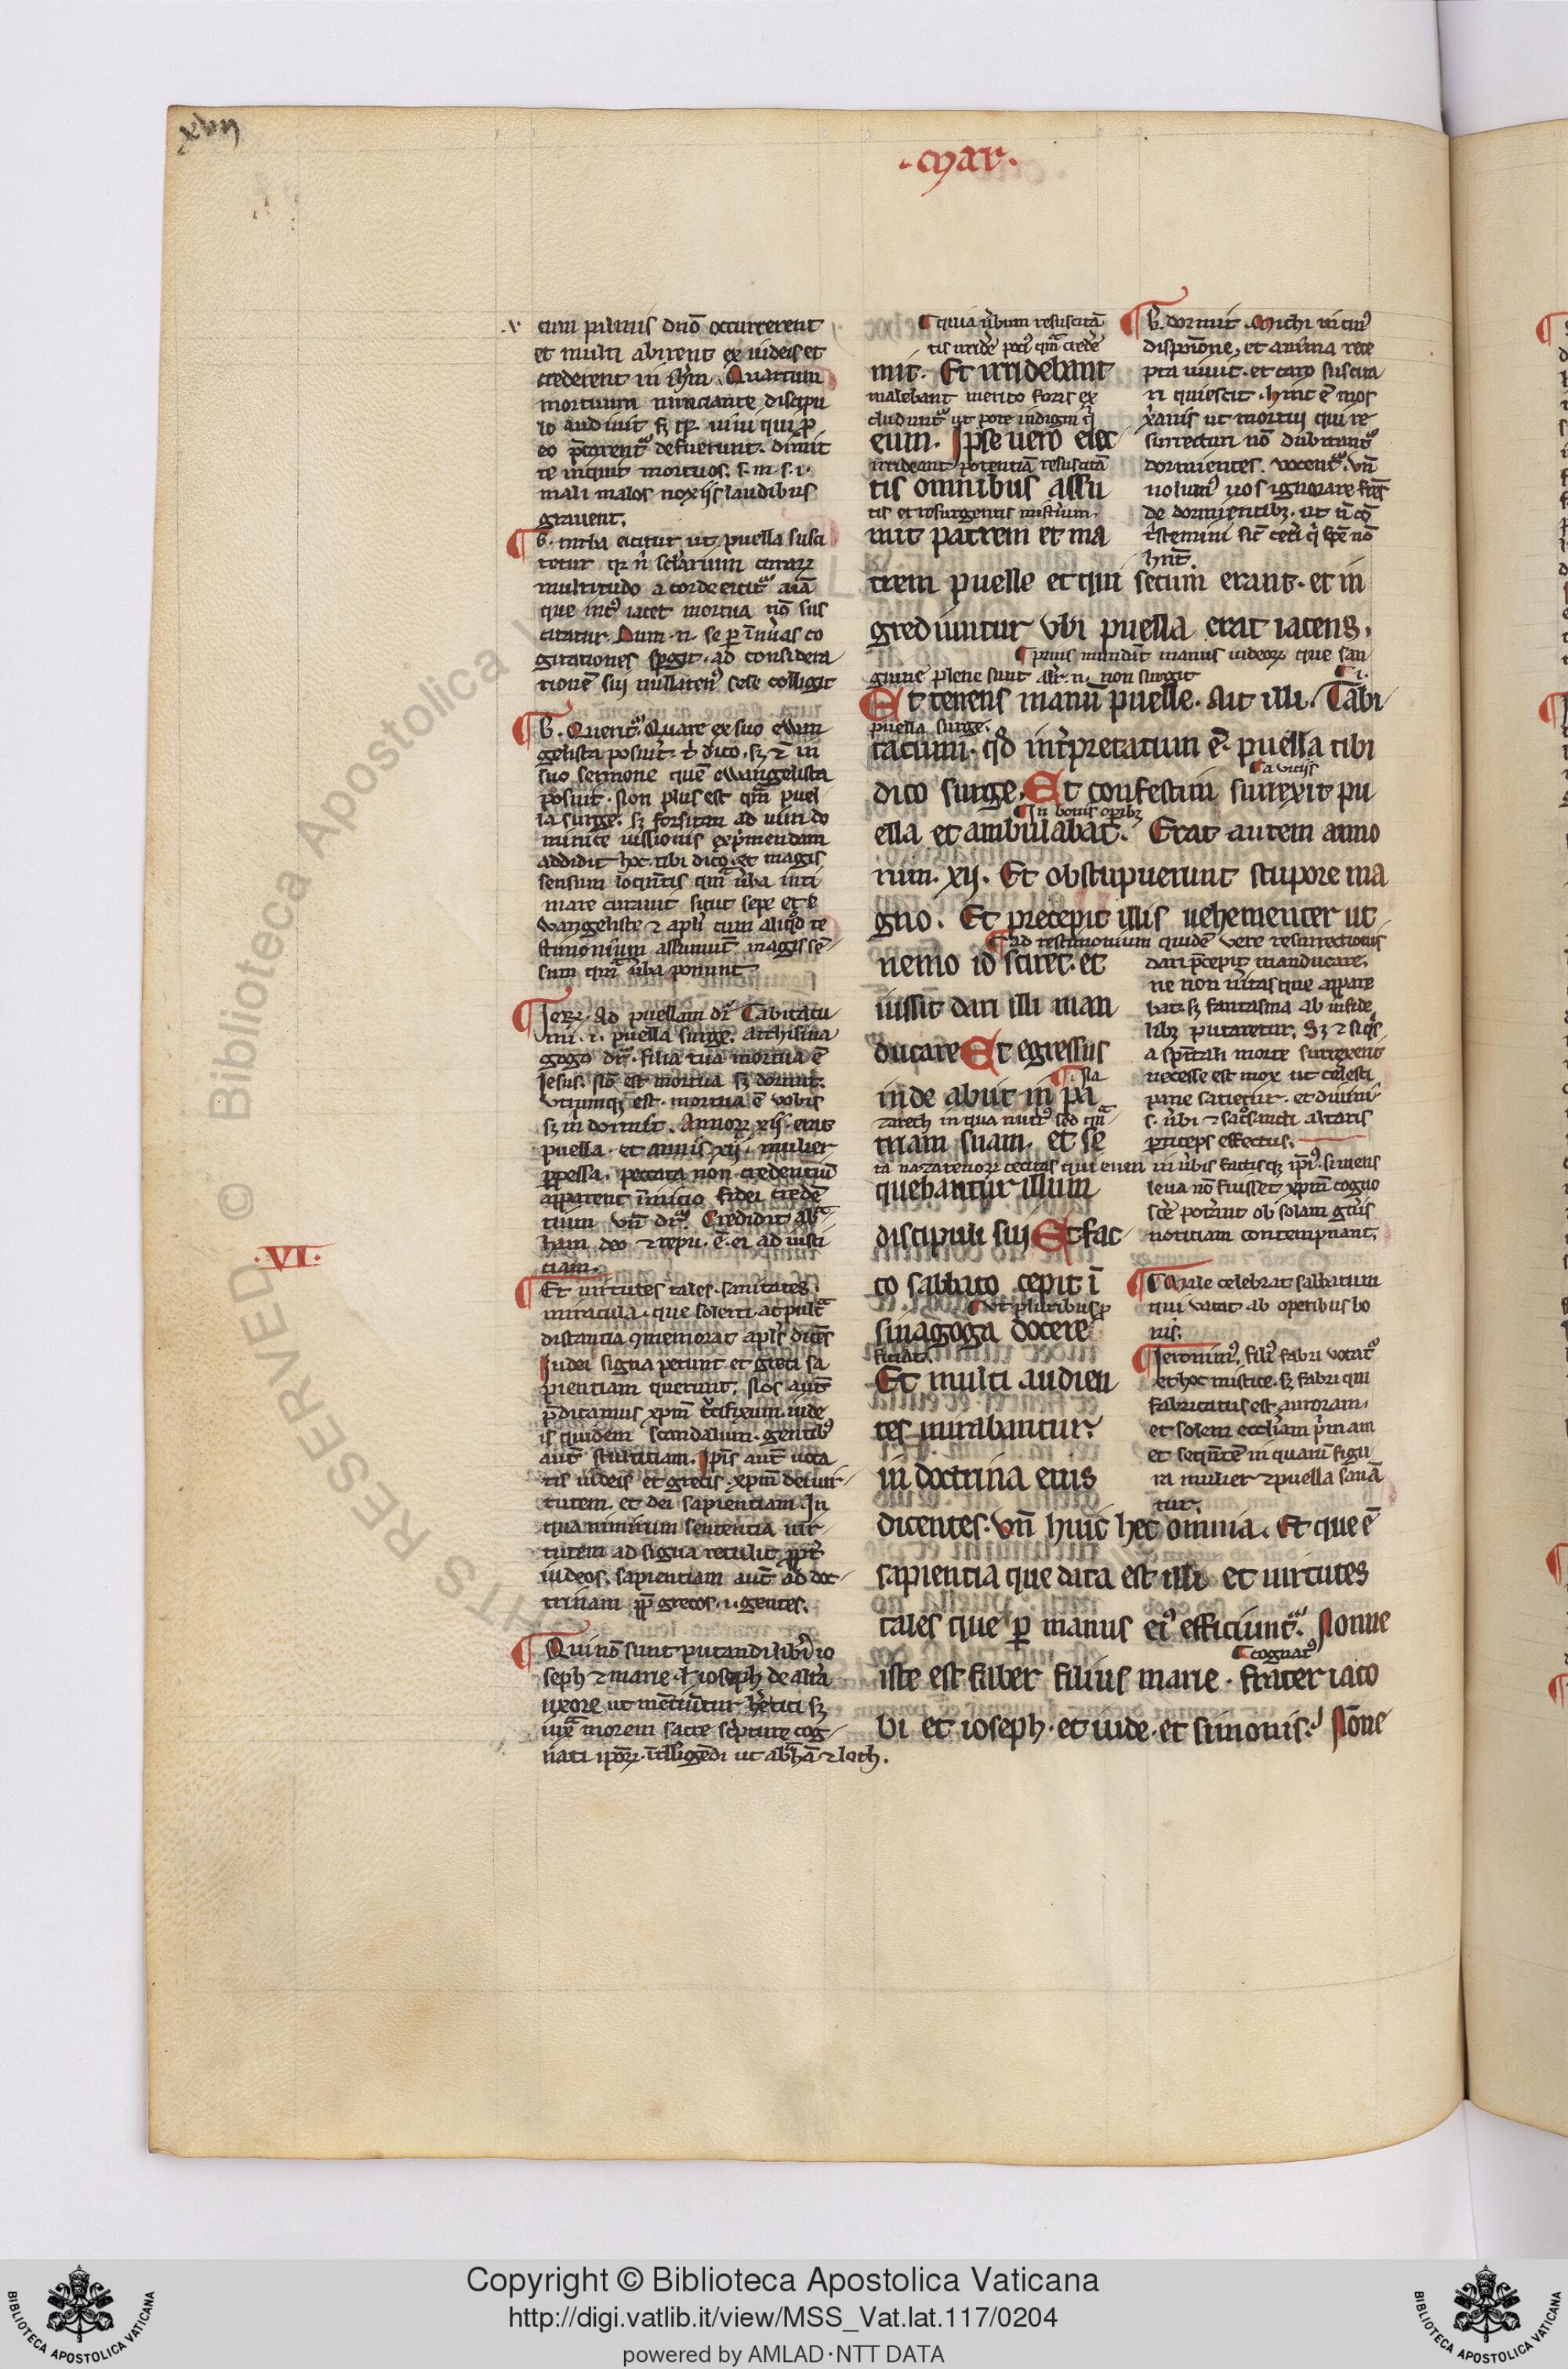 xviij
.Mar.
cum palmis dn̄o occurrerent
et multi abirent ex iudeis et
crederent in ih̄m. Quartum
mortuum nunciante discipu
lo audiuit sꝫ qꝛ uiui qui ꝓ
eo p̄carent᷑ defuerunt. dimit
te inquit mortuos. s. m. s. i.
mali malos noxijs laudibus
grauent.
B. turba eicitur ut puella susci
tetur qꝛ n̄ sclarium curaꝝ
multitudo a corde eicit᷑ aīa
que intꝰ iacet mortua nō sus
citatur. Dum .n. se ꝑ īnūas co
gitationes spgit. ad considera
tionē sui nullatenꝰ sese colligit
B. Querit᷑. Quare ex suo ewan
gelista posuit. tͥ dico. sꝫ ⁊ in
suo sermone quē ewangelista
posuit. Non plus est qm̄ puel
la surge. sꝫ forsitan ad uim do
minice iussionis exp̄mendam
addidit hoc. tibi dico. et magis
sensum loquētis qm̄ ūba inti
mare curauit sicut sepe et e
wangeliste ⁊ apl̄i cum aliqͩ te
stimonium assumūt magis sē
sum qm̄ ūba ponunt
Ieꝝ. Ad puellam dr᷑. Tabitacu
mi .i. puella surge. Archisina
gogo dr᷑. filia tua mortua ē
Iesus. nō est mortua sꝫ dormit.
Vtrumqꝫ est. mortua ē uobis
sꝫ m̄ dormit. Annoꝝ xij. erat
puella. et annis xij. mulier
ꝑpessa. peccata non credentiū
apparent īinicio fidei credē
tium vn̄ dr᷑. Credidit abͣ
ham deo ⁊ repu. ē. ei ad iusti
ciam.
.VI.
Et uirtutes tales. sanitates.
miracula. que solerti ac pulcͣ
distantia ꝯmemorat apl̄s dicēs
Iudei signa petunt et greci sa
pientiam querunt. Nos aut̄
p̄dicamus xp̄m cͥcifixum. iude
is quidem scandalum. gentibꝰ
aut̄ stulticiam. Ip̄is aut̄ uoca
tis iudeis et grecis. xp̄m dei uir
tutem. et dei sapientiam. In
qua nimirum sententia uir
tutem ad signa retulit ꝓpt̄
iudeos. sapientiam aut̄ ad doc
trinam ꝓp̄ grecos .i. gentes.
Qui nō sunt putandi lib̄i io
seph ⁊ marie. ł ioseph de alt̄a
uxore ut mētiūtur h̄etici sꝫ
iuxͣ morem sacre sc̄pture cog
nati ipōꝝ ītelligēdi ut ab̄hā ⁊ loth.
quia ūbum resuscitā
tis irride pociꝰ qm̄ crede
mit. Et irridebant
malebant merito foris ex
cludunt᷑ ut pote indigni qͥ
eum. Ipse uero eiec
irrideant potentiā resuscitā
tis omnibus assu
tis et resurgentis mist̄ium.
mit patrem et ma
trem puelle et qui secum erant. et in
grediuntur vbi puella erat iacens.
prius mundēt manus iudeoꝝ que san
guine plene sunt alit̄ .n. non surgit
.i.
Et tenens manū puelle. Ait illi. Tabi
puella surge.
tacumi. qd̄ int̄pretatum ē. puella tibi
a uiciis
dico surge. Et confestim surrexit pu
In bonis opībꝫ
ella et ambulabat. Erat autem anno
rum. xij. Et obstupuerunt stupore ma
gno. Et precepit illis uehementer ut
ad testimonium quidē vere resurrectionis
nemo id sciret. et
iussit dari illi man
ducare Et egressus
inde abiit in pa
zareth in qua nutitͥꝰ sed qm̄
triam suam. et se
ta nazarenoꝝ cecitas qui eum in ūbis factisqꝫ ip̄iꝰ. si mens
quebantur illum
discipuli sui Et fac
to sabbato cepit ī
vt pluribus ꝓ
sinagoga docere
ficiat.
Et multi audien
tes mirabantur
in doctrina eius
dicentes. Vn̄ huic hec omnia. Et que ē
sapientia que data est illi et uirtutes
tales que ꝑ manus eiꝰ efficiunt᷑. Nonne
cognatꝰ
iste est faber filius marie. frater iaco
bi et ioseph. et iude. et simonis. Nōne
B. dormit. Michi in cuiꝰ
dispoīone. et anima rece
pta uiuit. et caro suscita
ri quiescit. hinc ē mos
x̄anis ut mortui qui re
surrecturi nō dubitant᷑
dormientes. vocent᷑. vn̄
nolumꝰ uos ignorare fr̄es
de dormientibꝫ. ut n̄ cō
tͥstemini sic̄ cet̄i qͥ spē nō
hn̄t.
dari p̄cepit manducare.
ne non ūitas que appare
bat. sꝫ fantasma ab infide
libꝫ putaretur. Sꝫ ⁊ siqͥs
a spūali morte surrexerit
necesse est mox ut celesti
pane satietur. et diuini
s. ūbi ⁊ sac̄sancti altaris
ꝑticeps effectus.
leua nō fuisset xp̄m cogno
sc̄e pot̄ant ob solam gn̄is
notitiam contempnant.
Male celebrat sabbatum
qui vacat ab operibus bo
nis.
Ieronimꝰ. filiꝰ fabri vocat᷑
et hoc mistice. sꝫ fabri qui
fabricatus est auroram.
et solem eccl̄iam p̄mam
et seqn̄tē in quarū figu
ra mulier ⁊ puella sanā
tur.
Copyright © Biblioteca Apostolica Vaticana
http://digi.vatlib.it/view/MSS_Vat.lat.117/0204
powered by AMLAD·NTT DATA
BIBLIOTECA APOSTOLICA VATICANA
BIBLIOTECA APOSTOLICA VATICANA